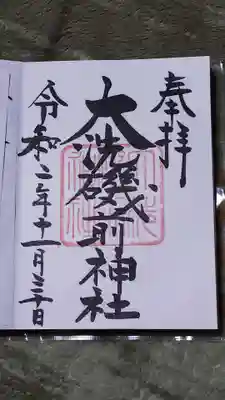 奉拝
大洗磯前神社
令和二年十一月三十日